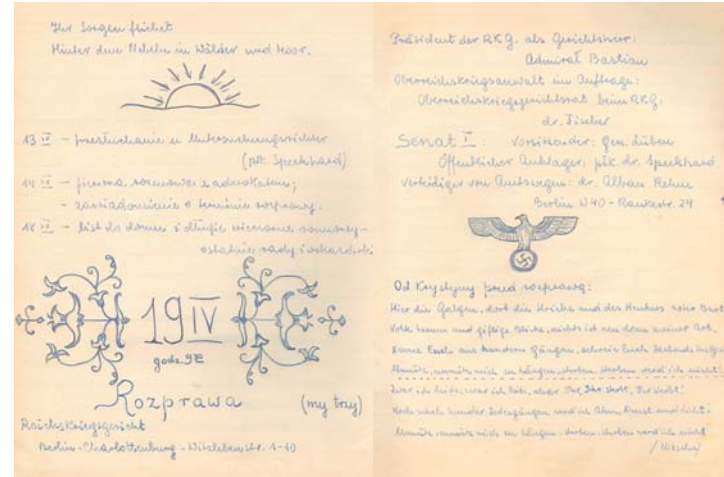 Ihr Sorgen fliehet
Hinter dem Nebelu in Wälder und Moor.
13 IV – przesłuchanie u Untersuchungsrichter
(płk. Speckhard)
14 IV – pierwsza rozmowa z adwokatem;
– zawiadomienie o terminie rozprawy.
18 IV – list do domu i długie wieczorne rozmowy –
ostatnie rady i wskazówki
19 IV
godz. 9
Rozprawa (my trzy)
Reichskriegsgericht
Berlin - Charlottenburg - Witzlebenstr. 4-10
Präsident der RKG. als Gerichtsherr:
Admirał Bastian
Oberreichskriegsanwalt im Auftrage:
Oberreichskriegsgerichtsrat beim RKG.
dr. Fischer
Senat I: Vorsitzender: gen. Lüben
Öffentlicher Anklager: płk. dr. Speckhard
Verteidiger von Amtswegen: dr. Alban Rehm
Berlin W 40 - Rankestr. 24
Od Krystyny przed rozprawą:
Hier die Galgen, dort die Stricke und des Henkers roter Bart
Volk herum und giftige Blicke, nichts ist neu dran meiner Art.
Kenne Euch aus hundert Gängen, schreie Euch lachend ins
Unnütz, unnütz mich zu hängen, sterben, sterben werd ich nicht!
Ihr sterbt, Ihr sterbt!
Noch nach hundert Todesgängen werd ich Atem, Dunst und Licht:
Unnütz, unnütz mich zu hängen, sterben, sterben werd ich nicht
/Nitzsche/